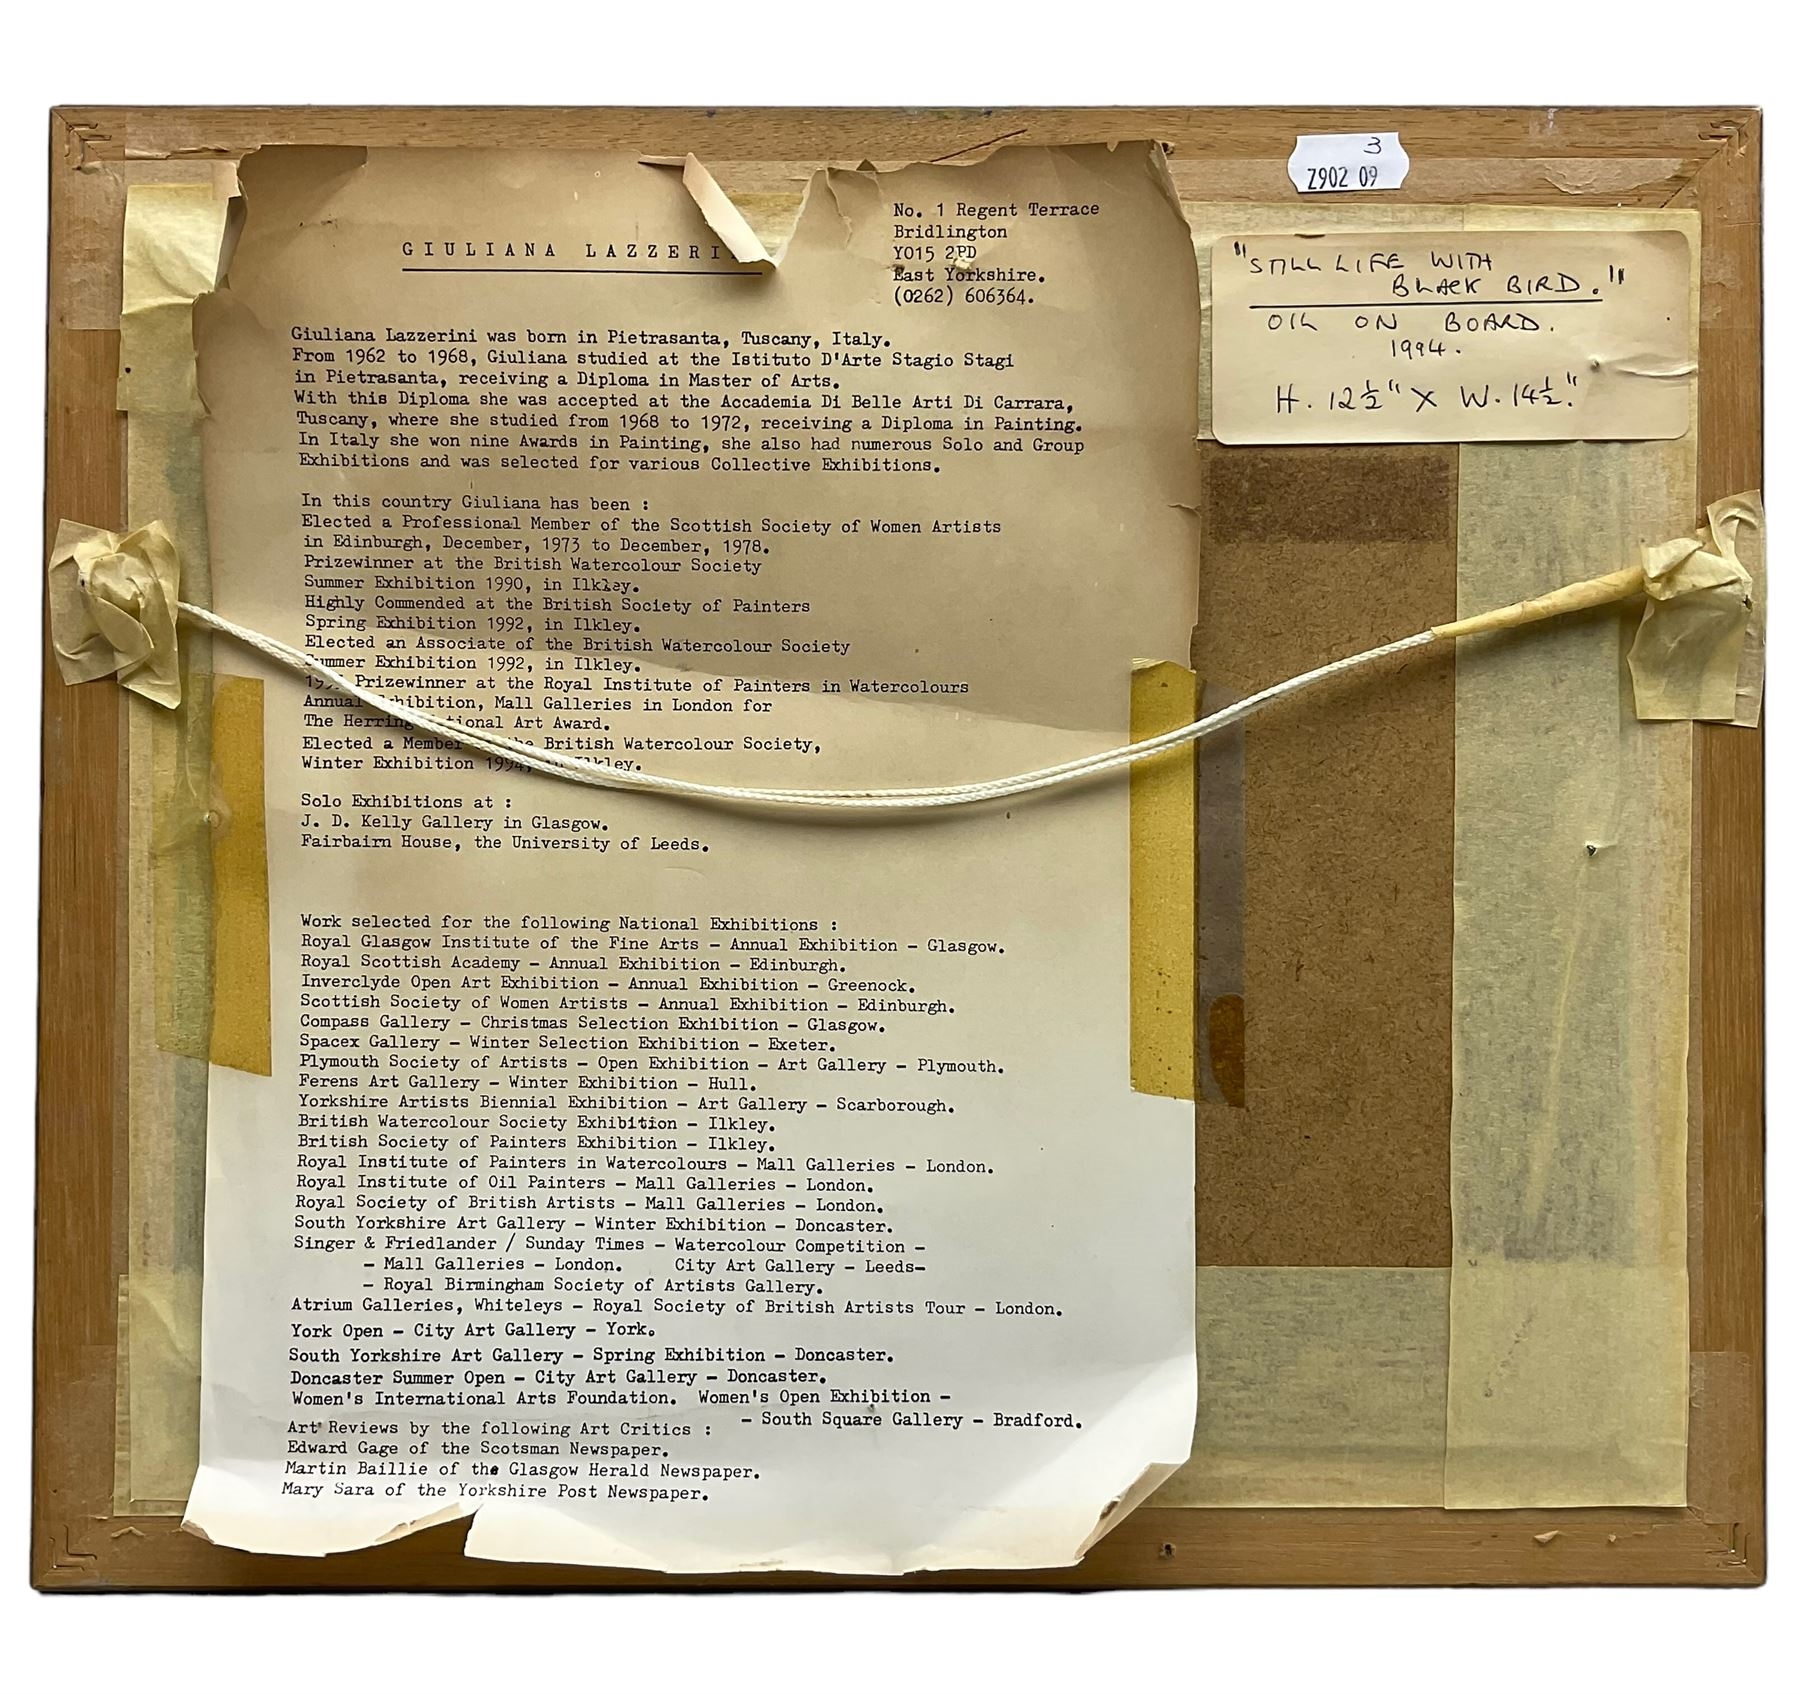 GIULIANA LAZZERI
No. 1 Regent Terrace
Bridlington
YO15 2PD
East Yorkshire.
(0262) 606364.
Giuliana Lazzerini was born in Pietrasanta, Tuscany, Italy.
From 1962 to 1968, Giuliana studied at the Istituto D'Arte Stagio Stagi
in Pietrasanta, receiving a Diploma in Master of Arts.
With this Diploma she was accepted at the Accademia Di Belle Arti Di Carrara,
Tuscany, where she studied from 1968 to 1972, receiving a Diploma in Painting.
In Italy she won nine Awards in Painting, she also had numerous Solo and Group
Exhibitions and was selected for various Collective Exhibitions.
In this country Giuliana has been :
Elected a Professional Member of the Scottish Society of Women Artists
in Edinburgh, December, 1973 to December, 1978.
Prizewinner at the British Watercolour Society
Summer Exhibition 1990, in Ilkley.
Highly Commended at the British Society of Painters
Spring Exhibition 1992, in Ilkley.
Elected an Associate of the British Watercolour Society
Summer Exhibition 1992, in Ilkley.
Prizewinner at the Royal Institute of Painters in Watercolours
Annual Exhibition, Mall Galleries in London for
The Herring National Art Award.
Elected a Member of the British Watercolour Society,
Winter Exhibition 1994, in Ilkley.
Solo Exhibitions at :
J. D. Kelly Gallery in Glasgow.
Fairbairn House, the University of Leeds.
Work selected for the following National Exhibitions :
Royal Glasgow Institute of the Fine Arts - Annual Exhibition - Glasgow.
Royal Scottish Academy - Annual Exhibition - Edinburgh.
Inverclyde Open Art Exhibition - Annual Exhibition - Greenock.
Scottish Society of Women Artists - Annual Exhibition - Edinburgh.
Compass Gallery - Christmas Selection Exhibition - Glasgow.
Spacex Gallery - Winter Selection Exhibition - Exeter.
Plymouth Society of Artists - Open Exhibition - Art Gallery - Plymouth.
Ferens Art Gallery - Winter Exhibition - Hull.
Yorkshire Artists Biennial Exhibition - Art Gallery - Scarborough.
British Watercolour Society Exhibition - Ilkley.
British Society of Painters Exhibition - Ilkley.
Royal Institute of Painters in Watercolours - Mall Galleries - London.
Royal Institute of Oil Painters - Mall Galleries - London.
Royal Society of British Artists - Mall Galleries - London.
South Yorkshire Art Gallery - Winter Exhibition - Doncaster.
Singer & Friedlander / Sunday Times - Watercolour Competition -
- Mall Galleries - London. City Art Gallery - Leeds-
- Royal Birmingham Society of Artists Gallery.
Atrium Galleries, Whiteleys - Royal Society of British Artists Tour - London.
York Open - City Art Gallery - York.
South Yorkshire Art Gallery - Spring Exhibition - Doncaster.
Doncaster Summer Open - City Art Gallery - Doncaster.
Women's International Arts Foundation. Women's Open Exhibition -
- South Square Gallery - Bradford.
Art Reviews by the following Art Critics :
Edward Gage of the Scotsman Newspaper.
Martin Baillie of the Glasgow Herald Newspaper.
Mary Sara of the Yorkshire Post Newspaper.
3
Z902 09
"STILL LIFE WITH
BLACK BIRD."
OIL ON BOARD.
1994.
H. 12½" X W. 14½."